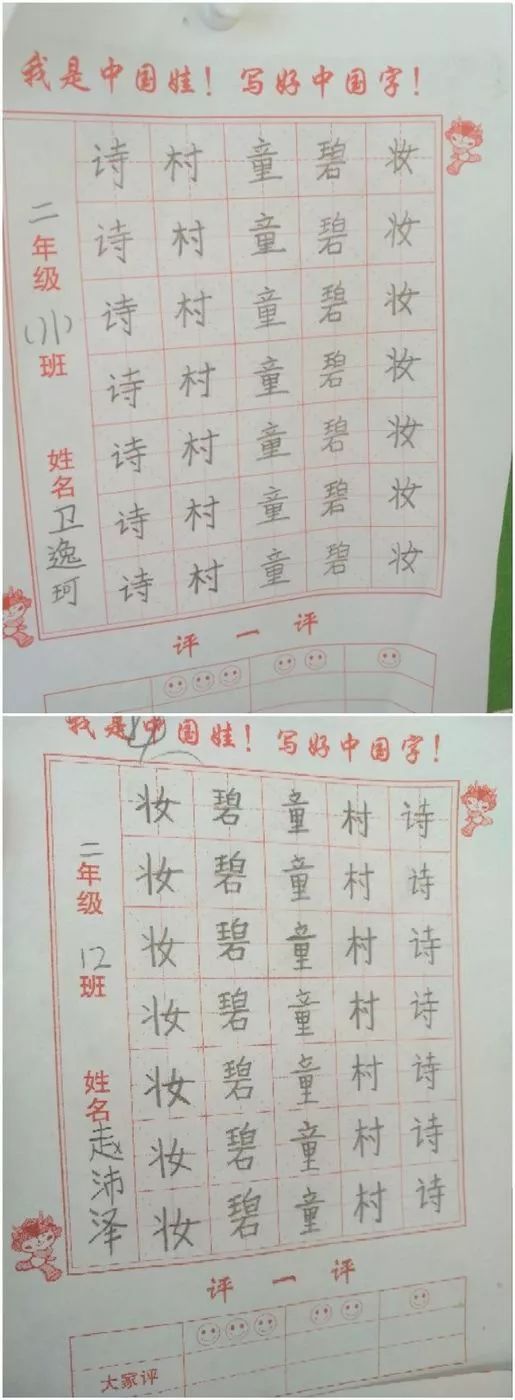 我是中国娃！写好中国字！
二年级
班
姓名卫逸珂
诗 村 童 碧 妆
诗 村 童 碧 妆
诗 村 童 碧 妆
诗 村 童 碧 妆
诗 村 童 碧 妆
诗 村 童 碧 妆
诗 村 童 碧 妆
评一评
我是中国娃！写好中国字！
二年级
12班
姓名赵沛泽
妆 碧 童 村 诗
妆 碧 童 村 诗
妆 碧 童 村 诗
妆 碧 童 村 诗
妆 碧 童 村 诗
妆 碧 童 村 诗
妆 碧 童 村 诗
评一评
大家评